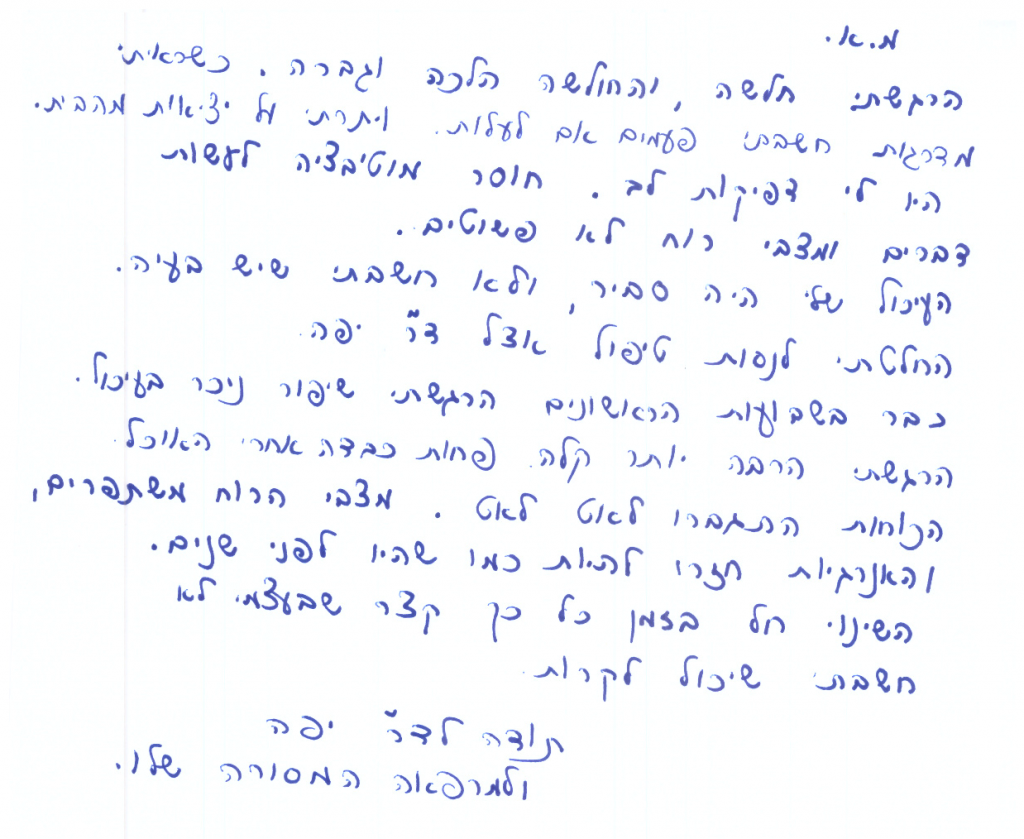 מ.א.
הרגשתי חלשה, והחולשה הלכה וגברה. כשראיתי
מדרגות חשבתי פעמים אם לעלות. ויתרתי על יציאות מהבית.
היו לי דפיקות לב. חוסר מוטיבציה לעשות
דברים ומצבי רוח לא פשוטים.
העיכול שלי היה סביר, ולא חשבתי שיש בעיה.
החלטתי לנסות טיפול אצל ד״ר יפה.
כבר בשבועות הראשונים הרגשתי שיפור ניכר בעיכול.
הרגשתי הרבה יותר קלה. פחות כבדה אחרי האוכל.
הכוחות התגברו לאט לאט. מצבי הרוח משתפרים,
והאנרגיות חזרו להיות כמו שהיו לפני שנים.
השינוי חל בזמן כל כך קצר שבעצמי לא
חשבתי שיכול לקרות.
תודה לד״ר יפה
ולמרפאה המסורה שלו.